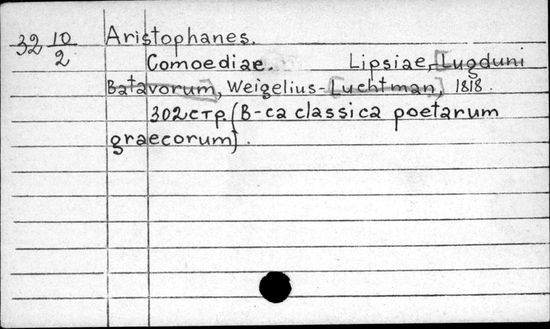 32 10/2 Aristophanes.
Comoediae. Lipsiae, [Lugduni
Batavorum], Weigelius-[Luchtman], 1818.
302стр. (B-ca classica poetarum
graecorum).